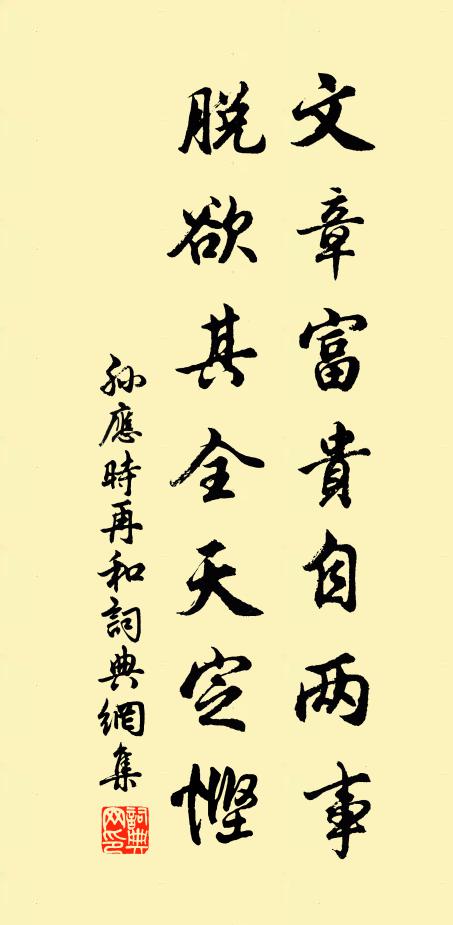 文章富貴自两事
脱欲其全天定慳
孫應時再和詞典網集
詞典网印